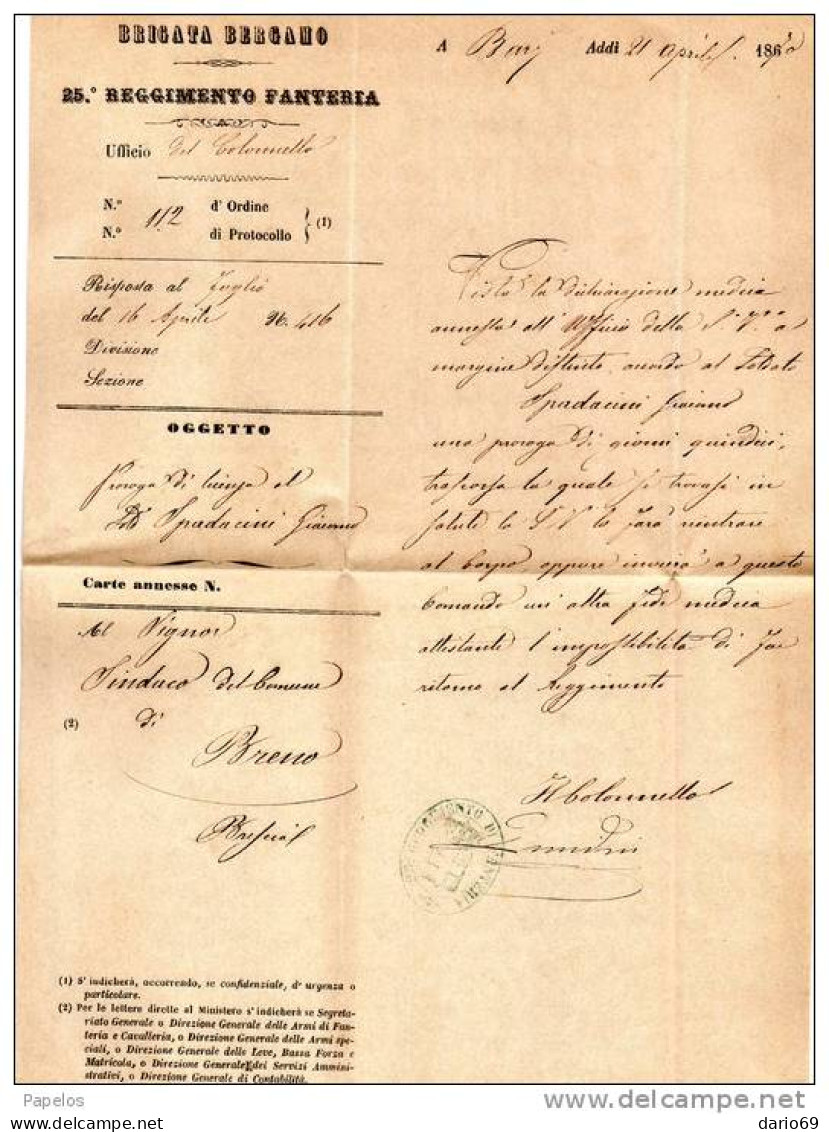 BRIGATA BERGAMO
25.° REGGIMENTO FANTERIA
Ufficio del Colonnello
N.° 112 d' Ordine
N.° di Protocollo (1)
Risposta al foglio
del 16 Aprile N. 416
Divisione
Sezione
OGGETTO
Proroga di licenza al
Sold° Spadacini Giacomo
Carte annesse N.
Al Signor
Sindaco del Comune
(2) di
Breno
Brescia
A Bari Addì 21 Aprile 1870
Vista la dichiarazione medica
annessa all' Ufficio della S. V.a a
margine distinto, accordo al Soldato
Spadacini Giacomo
una proroga di giorni quindici,
trascorsa la quale se trovasi in
salute la S. V. lo farà rientrare
al Corpo oppure invierà a questo
Comando un' altra fede medica
attestante l' impossibilità di far
ritorno al Reggimento
Il Colonnello
REGGIMENTO DI FANTERIA
(1) S' indicherà, occorrendo, se confidenziale, d' urgenza o
particolare.
(2) Per le lettere dirette al Ministero s' indicherà se Segreta-
riato Generale o Direzione Generale delle Armi di Fan-
teria e Cavalleria, o Direzione Generale delle Armi spe-
ciali, o Direzione Generale delle Leve, Bassa Forza e
Matricola, o Direzione Generale dei Servizi Ammini-
strativi, o Direzione Generale di Contabilità.
Papelos
delcampe.net
dario69